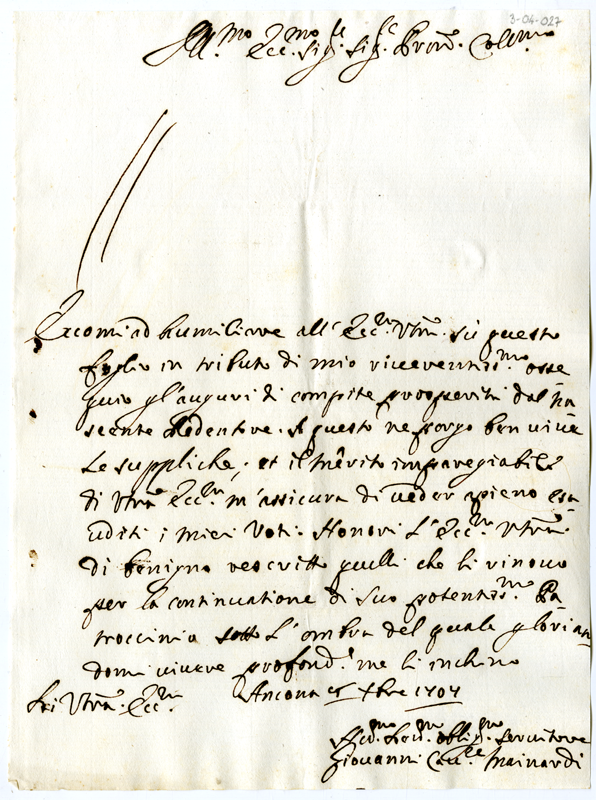 3-04-027
Ill.mo Ecc.mo Sig.re Sig.re Pron. Coll.mo
Eccomi ad humiliare all' Ecc.za Vtra. sù questo
foglio in tributo di mio riverentis.mo osse
quio gl'auguri di compite prosperità dal na
scente Redentore. A questo ne porgo ben vive
le suppliche, et il merito impareggiabile
di Vtra Ecc.za m'assicura di veder apieno esa
uditi i miei Voti. Honori l'Ecc.za Vtra.
di benigno rescritto quelli che li rinovo
per la continuatione di suo potentis.mo Pa
troccinio sotto l'ombra del quale glorian
domi vivere profond.te me li inchino
Di Vtra. Ecc.za Ancona Xbre 1707
Servitore
Giovanni Mainardi